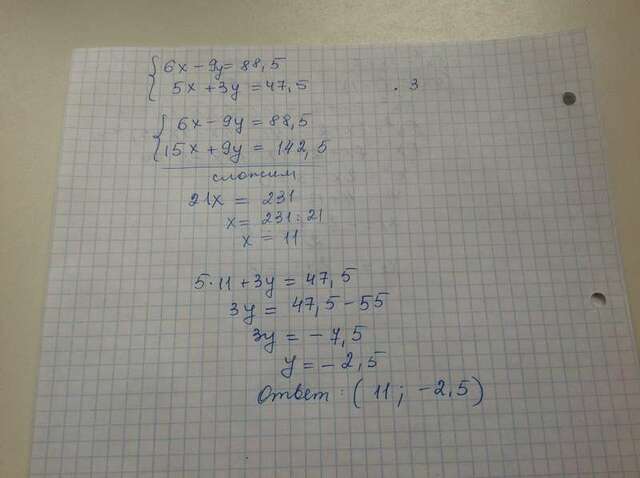 6x - 9y = 88,5
5x + 3y = 47,5 · 3
6x - 9y = 88,5
15x + 9y = 142,5
сложим
21x = 231
x = 231 : 21
x = 11
5·11 + 3y = 47,5
3y = 47,5 - 55
3y = -7,5
y = -2,5
Ответ: (11; -2,5)